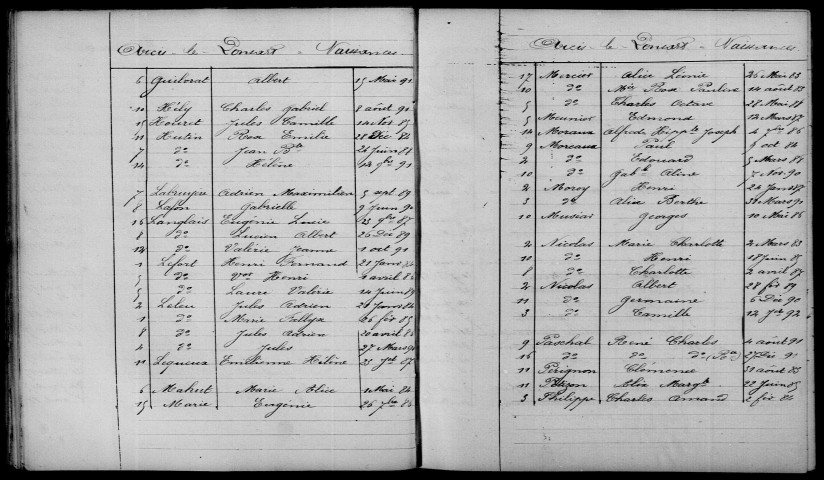 Arcis - le - Ponsart - Naissances
6 Guilorat Albert 15 Mai 91
10 Hély Charles Gabriel 8 août 91
15 Houret Jules Camille 85
11 Hutin Rosa Emilie 28 Déc 86
7 do Jean Bte 26 Juin 88
14 do Hélène 12 9bre 91
7 Labruyère Adrien Maximilien 5 Sept 89
8 Lafon Gabrielle 9 Juin 90
16 Langlais Eugénie Lucie 23 9bre 87
8 do Lucien Albert 26 Déc 89
12 do Valérie Jeanne 1 oct 91
1 Lefort Henri Fernand 21 Janv 86
5 do Vor Henri 1 avril 86
5 do Laure Valérie 14 Juin 89
2 Leleu Jules Adrien 20 Janv 84
1 do Marie 26 fév 85
8 do Jules Adrien 20 avril 86
4 do Jules 27 Mars 91
11 Lequeux Emilienne Hélène 25 7bre 87
6 Mahert Marie Alice 11 Mai 84
15 Marie Eugénie 26 7bre 84
Arcis - le - Ponsart - Naissances
17 Mercier Alice Léonie 26 Mai 83
10 do Mie Rosa Pauline 14 août 83
5 do Charles Octave 28 Mai 88
5 Meunier Edmond 12 Mars 87
14 Moraux Alfred Hippte Joseph 4 7bre 86
9 Moreaux Paul 9 oct 84
2 do Edouard 5 Mars 88
10 do Gable Aline 7 Nov 90
2 Moroy Henri 24 Janv 87
3 do Alice Berthe 30 Mars 90
10 Georges 10 Mai 86
2 Nicolas Marie Charlotte 2 Mars 83
10 do Henri 17 Juin 85
8 do Charlotte 2 avril 87
2 Nicolas Albert 28 fév 89
11 do Germaine 6 Déc 90
3 do Camille 12 Jer 92
9 Paschal René Charles 4 août 91
16 do do do (Bon) 27 Déc 91
11 Pérignon Clémence 31 août 83
11 Alice Margte 22 Juin 85
3 Philippe Charles Amand 2 fév 84